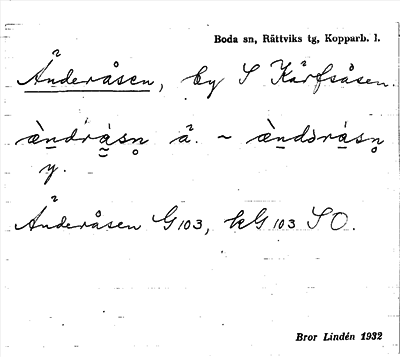 Boda sn, Rättviks tg, Kopparb. l.
Änderåsen, by S Kårfsåsen.
ä̀ndrásn̥ ä. ~ ä̀ndərásn̥
y.
Änderåsen G103, kG103 SO.
Bror Lindén 1932